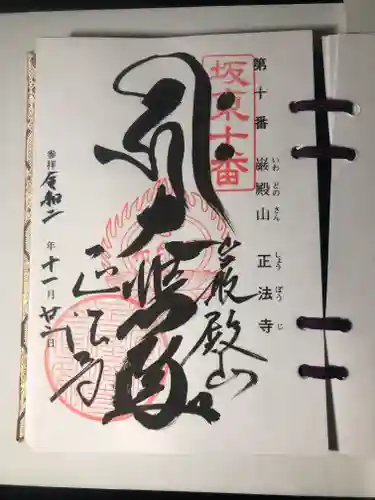 第十番 巌殿山 正法寺
いわ どの さん しょう ぼう じ
坂東十番
巖殿山
大悲殿
正法寺
参拝 令和二年十一月廿二日